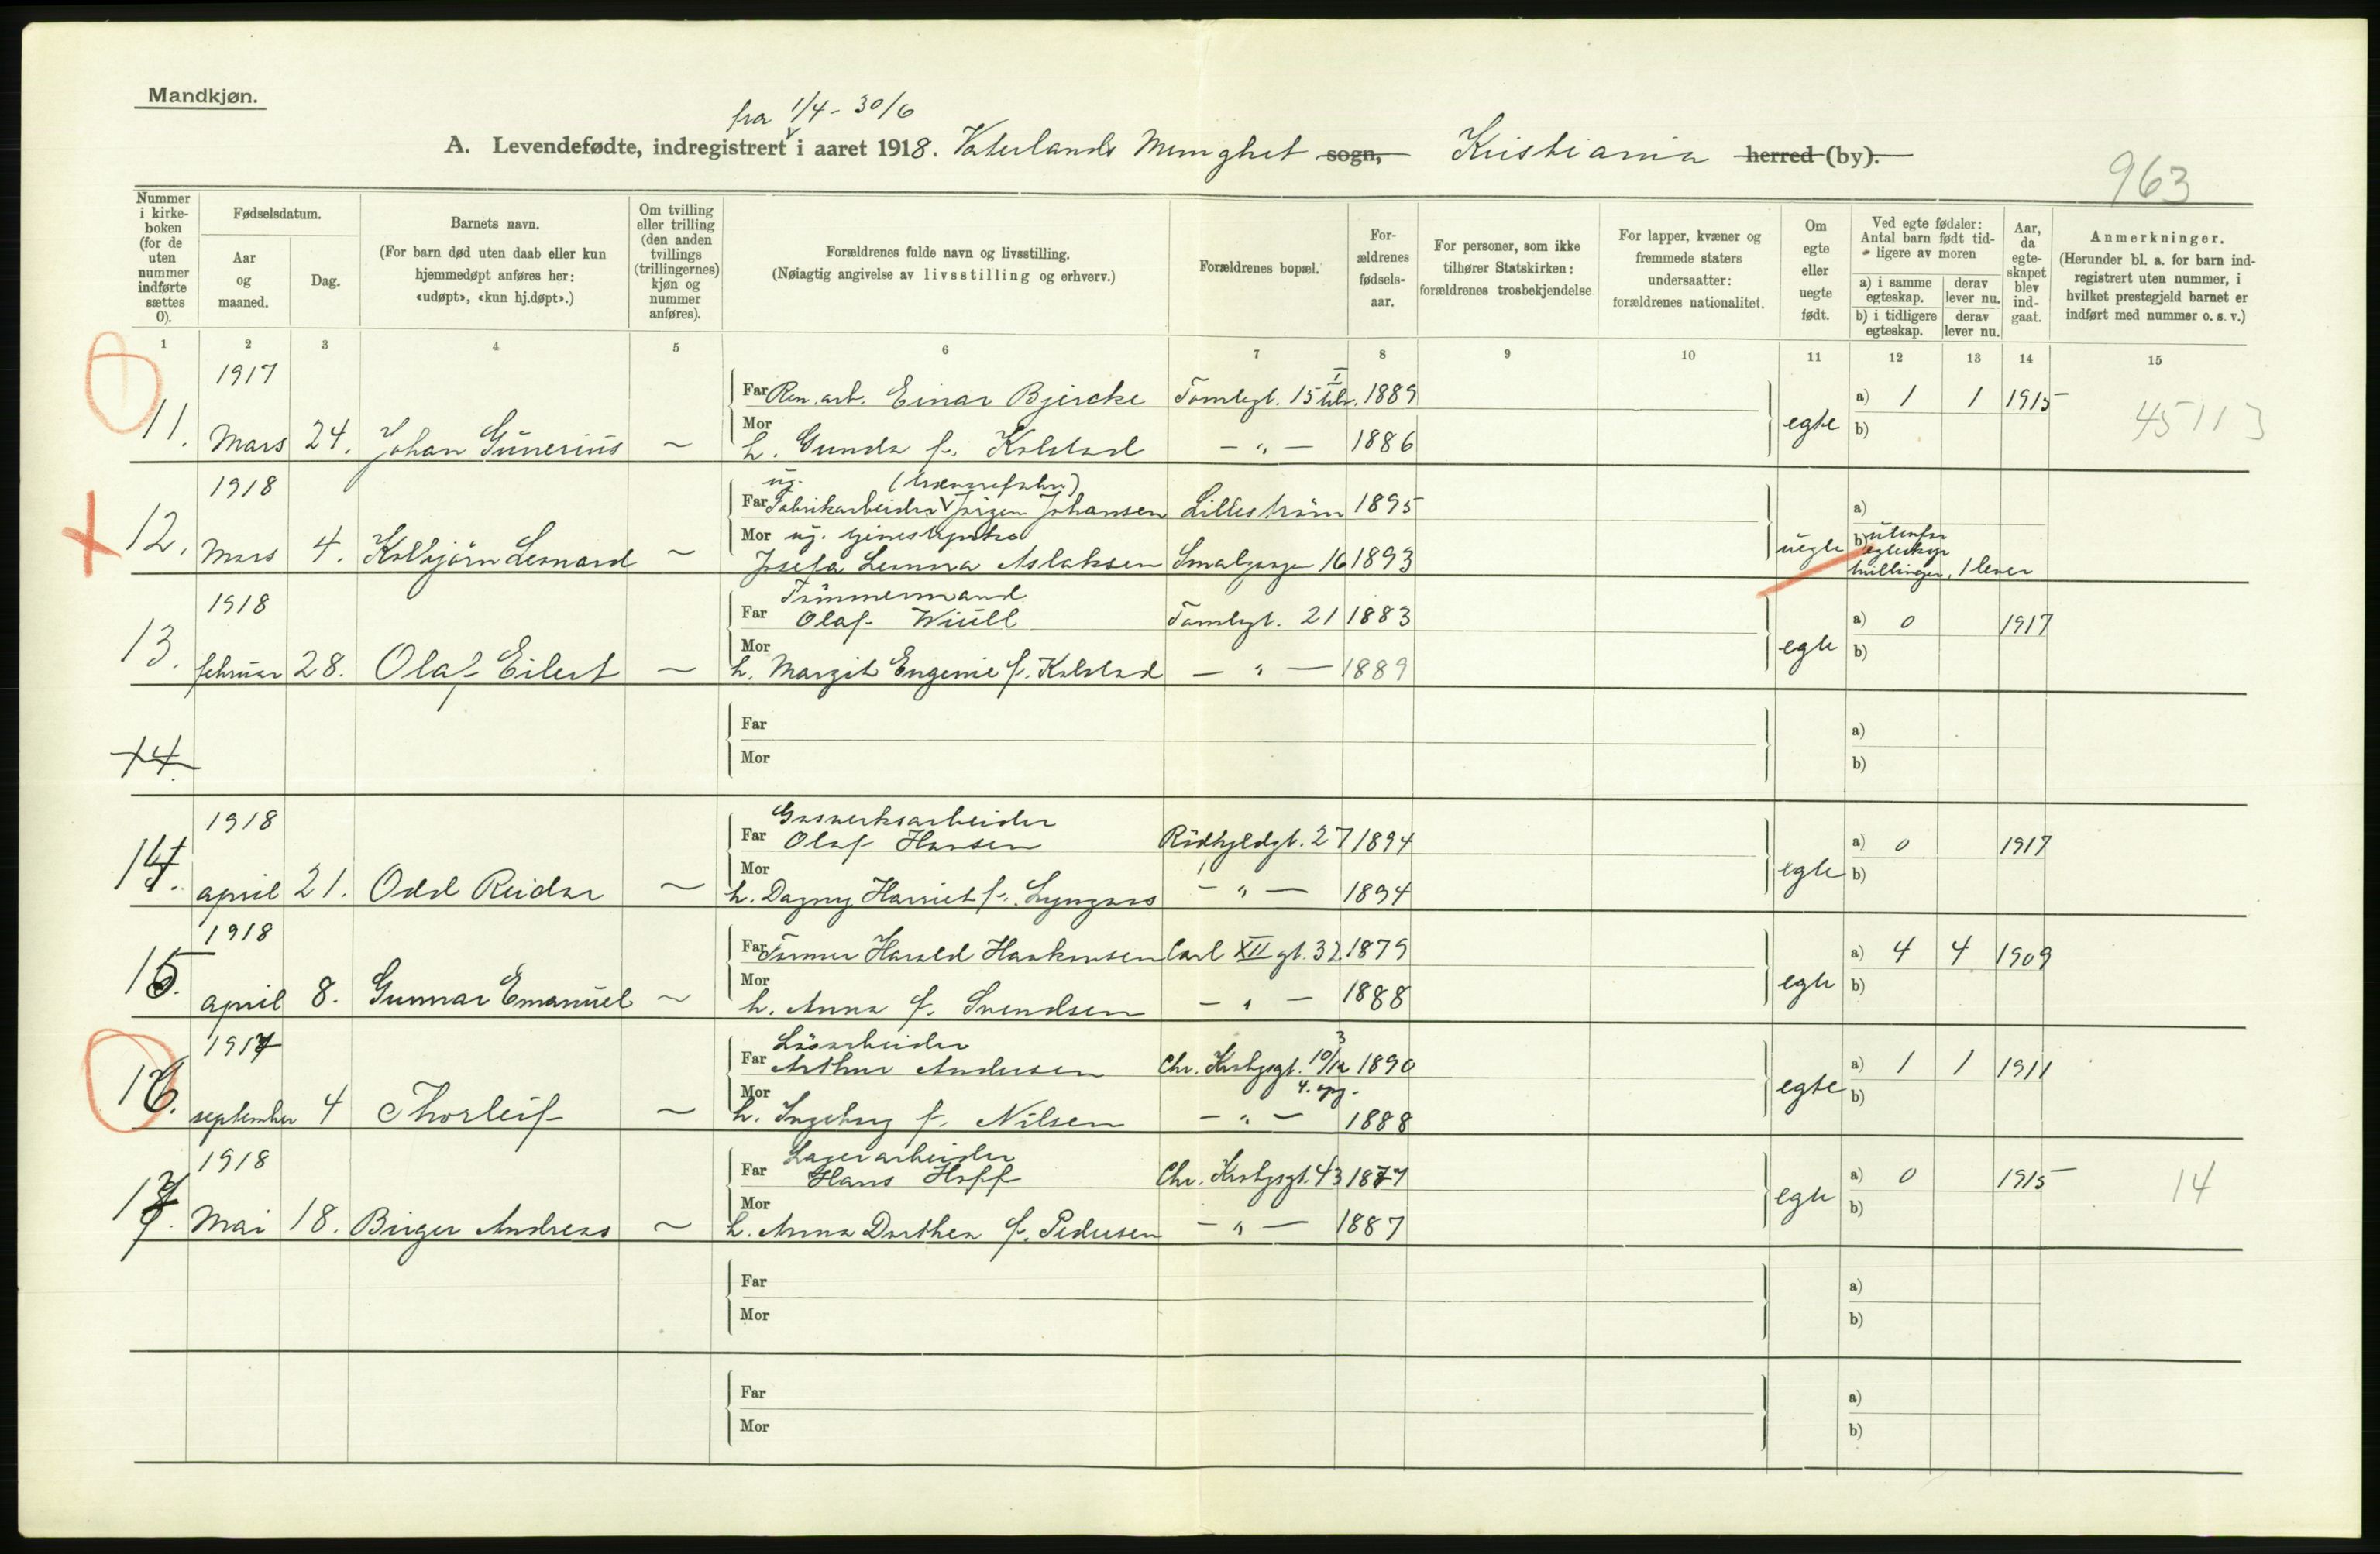 Mandkjøn.
fra 1/4 - 30/6
A. Levendefødte, indregistrert i aaret 1918. Vaterlands Menighet sogn, Kristiania herred (by).
963
Nummer i kirkeboken (for de uten nummer indførte sættes 0).
Fødselsdatum.
Aar og maaned.
Dag.
Barnets navn.
(For barn død uten daab eller kun hjemmedøpt anføres her: «udøpt», «kun hj.døpt».)
Om tvilling eller trilling (den anden tvillings (trillingernes) kjøn og nummer anføres).
Forældrenes fulde navn og livsstilling.
(Nøiagtig angivelse av livsstilling og erhverv.)
Forældrenes bopæl.
Forældrenes fødselsaar.
For personer, som ikke tilhører Statskirken: forældrenes trosbekjendelse
For lapper, kvæner og fremmede staters undersaatter: forældrenes nationalitet.
Om egte eller uegte født.
Ved egte fødsler: Antal barn født tidligere av moren
a) i samme egteskap.
derav lever nu.
b) i tidligere egteskap.
derav lever nu.
Aar, da egteskapet blev indgaat.
Anmerkninger.
(Herunder bl. a. for barn indregistrert uten nummer, i hvilket prestegjeld barnet er indført med nummer o. s. v.)
1 2 3 4 5 6 7 8 9 10 11 12 13 14 15
1917
Far Ren. arb. Einar Bjercke Tomtegt. 15 1889 a) 1 1 1915
11. Mars 24. Johan Gunerius ~ Mor h. Gunda f. Kolstad - " - 1886 egte b) 45113
1918
ug.
Far Fabrikarbeider Jörgen Johansen Lilleström 1895 a)
Mor ug. tjenestepike
12. Mars 4. Kolbjörn Leonard ~ Josefa Lenna Aslaksen Smalgangen 16 1893 uegte b) utenfor egteskap tvillinger, 1 lever
1918
Tömmermand
Far Olaf Wiull Tomtegt. 21 1883 a) 0 1917
13. februar 28. Olaf Eilert ~ Mor h. Margit Eugenie f. Kolstad - " - 1889 egte b)
Far a)
14. Mor b)
1918
Gasverksarbeider
Far Olaf Hansen Rödfyldgt. 27 1894 a) 0 1917
14. april 21. Odd Reidar ~ Mor h. Dagny Harriet f. Lyngaas - " - 1894 egte b)
1918
Far Former Harald Haakonsen Carl XII gt. 32 1879 a) 4 4 1909
15. april 8. Gunnar Emanuel ~ Mor h. Anna f. Svendsen - " - 1888 egte b)
1917
Lösarbeider
Far Arthur Andersen Chr. Krohgsgt. 10/12 3 1890 a) 1 1 1911
4. opg.
16. september 4 Thorleif ~ Mor h. Ingeborg f. Nilsen - " - 1888 egte b)
1918
Lagerarbeider
Far Hans Hoff Chr. Krohgsgt. 43 1877 a) 0 1915 14
17. Mai 18. Birger Andreas ~ Mor h. Anna Dorthea f. Pedersen - " - 1887 egte b)
Far a)
Mor b)
Far a)
Mor b)